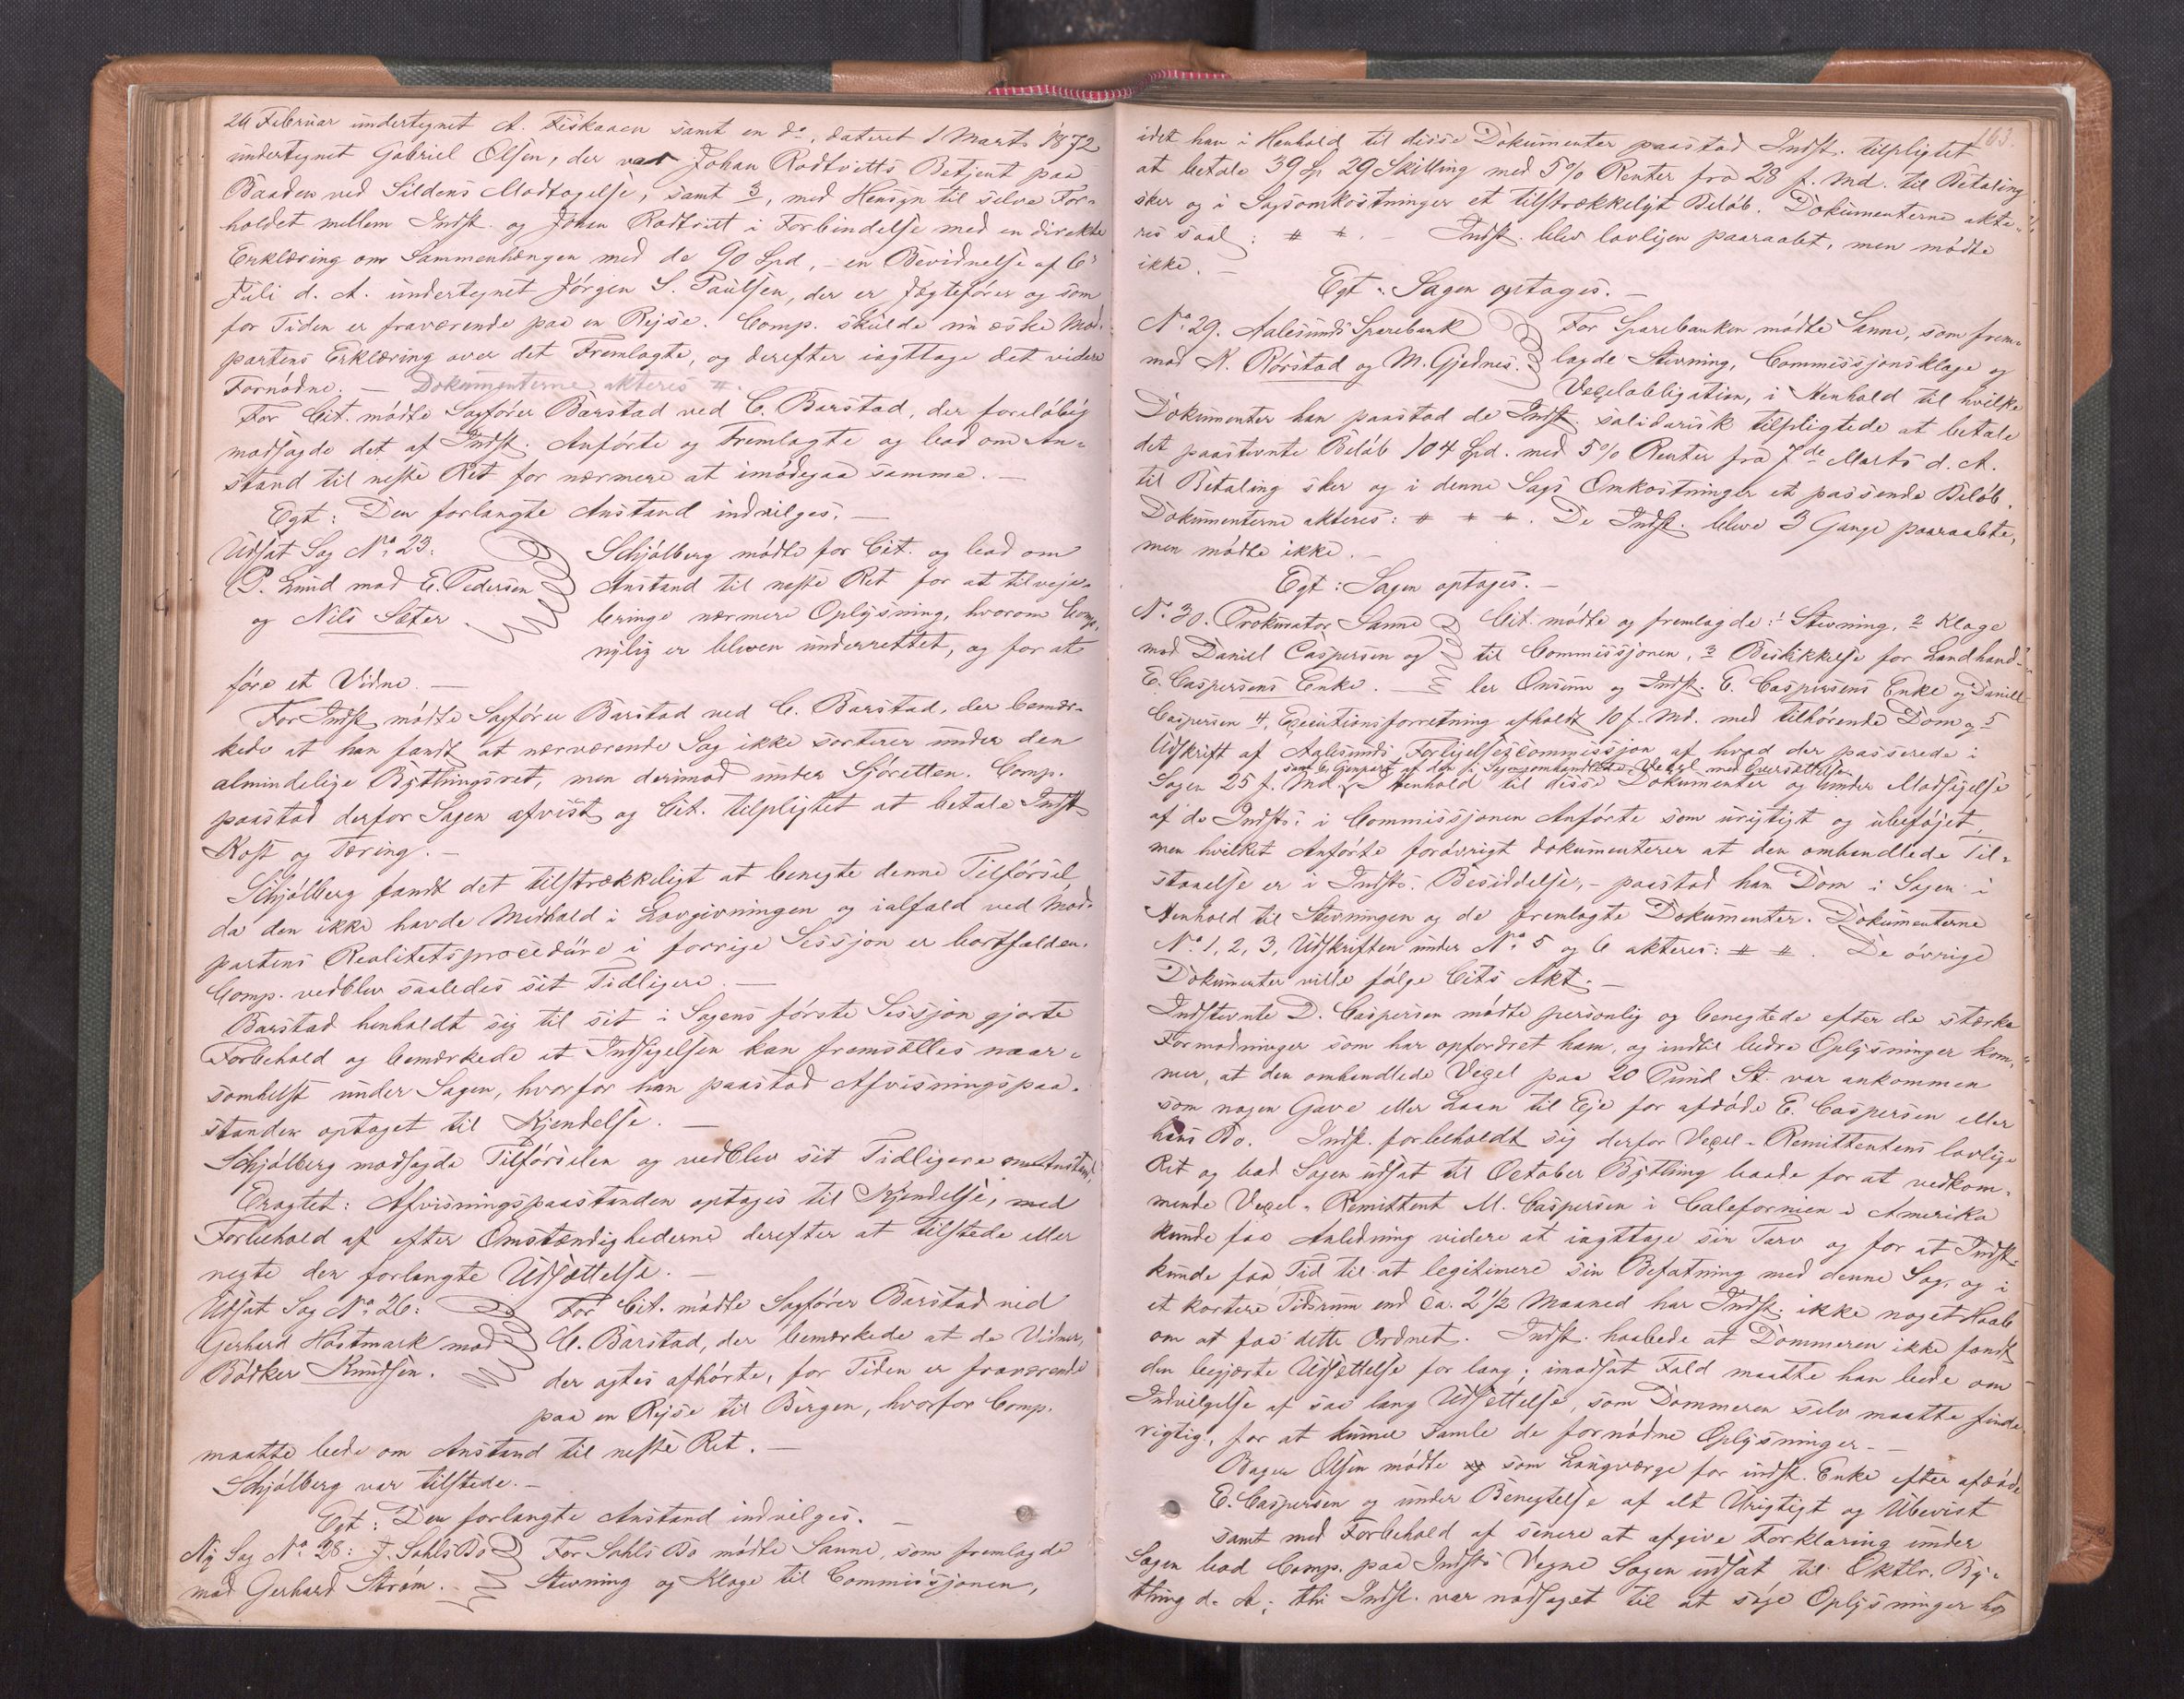 24 Februar undertegnet A. Fiskaaen samt en do, dateret 1 Marts 1872
undertegnet Gabriel Olsen, der var Johan Rodtvitts Betjent paa
Baaden ved Sildens Modtagelse, samt 3, med Hensyn til selve For-
holdet mellem Indst. og Johan Rodtvitt i Forbindelse med en direkte
Erklæring om Sammenhængen med de 90 Spd, - en Bevidnelse af 6'
Juli d. A. undertegnet Jørgen S. Paulsen, der er Jægtefører og som
for Tiden er fraværende paa en Rejse. Comp. skulde nu æske Mod-
partens Erklæring over det Fremlagte, og derefter iagttage det videre
Fornødne. — Dokumenterne akteres #.
For Cit. mødte Sagfører Barstad ved C. Barstad, der foreløbig
modsagde det af Indst. Anførte og Fremlagte og bad om An-
stand til neste Ret for nærmere at imødegaa samme. —
Egt: Den forlangte Anstand indvilges. —
Udsat Sag No 23:
P. Lund mod E. Pedersen
og Nils Sæter
Schjølberg mødte for Cit. og bad om
Anstand til neste Ret for at tilveje-
bringe nærmere Oplysning, hvorom Comp.
nylig er bleven underrettet, og for at
føre et Vidne. —
For Indst. mødte Sagfører Barstad ved C. Barstad, der bemær-
kede at han fandt at nærværende Sag ikke sorterer under den
almindelige Bythingsret, men derimod under Sjøretten. Comp.
paastod derfor Sagen afvist og Cit. tilpligtet at betale Indst.
Kost og Tæring. —
Schjølberg fandt det tilstrækkeligt at benegte denne Tilførsel,
da den ikke havde Medhold i Lovgivningen og ialfald ved Mod-
partens Realitetsprocedure i forrige Sessjon er bortfalden.
Comp. vedblev saaledes sit Tidligere. —
Barstad henholdt sig til sit i Sagens første Sessjon gjorte
Forbehold og bemærkede at Indsigelsen kan fremsættes naar-
somhelst under Sagen, hvorfor han paastod Afvisningspaa-
standen optaget til Kjendelse. —
Schjølberg modsagde Tilførselen og vedblev sit Tidligere om Anstand.
Eragtet: Afvisningspaastanden optages til Kjendelse, med
Forbehold af efter Omstændighederne derefter at tilstede eller
negte den forlangte Udsættelse. —
Udsat Sag No 26:
Gerhard Høstmark mod
Bødker Knudsen.
For Cit. mødte Sagfører Barstad ved
C. Barstad, der bemærkede at de Vidner,
der agtes afhørte, for Tiden er fraværende
paa en Rejse til Bergen, hvorfor Comp.
maatte bede om Anstand til neste Ret. —
Schjølberg var tilstede. —
Egt: Den forlangte Anstand indvilges. —
Ny Sag No 28: J. Sahls Bo
mod Gerhard Strøm.
For Sahls Bo mødte Sanne, som fremlagde
Stevning og Klage til Commissjonen,
163.
idet han i Henhold til disse Dokumenter paastod Indst. tilpligtet
at betale 39 Sp 29 Skilling med 5% Renter fra 28 f. Md. til Betaling
sker og i Sagsomkostninger et tilstrækkeligt Beløb. Dokumenterne akte-
res saal: # #. — Indst. blev lovligen paaraabt, men mødte
ikke. —
Egt: Sagen optages. —
No 29. Aalesunds Sparebank
mod K. Rørstad og M. Gjednes.
For Sparebanken mødte Sanne, som frem-
lagde Stevning, Commissjonsklage og
Vexelobligation, i Henhold til hvilke
Dokumenter han paastod de Indst. solidarisk tilpligtede at betale
det paastevnte Beløb 104 Spd. med 5% Renter fra 7de Marts d. A.
til Betaling sker og i denne Sags Omkostninger et passende Beløb.
Dokumenterne akteres: # # #. De Indst. bleve 3 Gange paaraabte,
men mødte ikke. —
Egt: Sagen optages. —
No 30. Prokurator Sanne
mod Daniel Caspersen og
E. Caspersens Enke. —
Cit. mødte og fremlagde: 1 Stevning, 2 Klage
til Commissjonen, 3 Beskikkelse for Landhand-
ler Onsum og Indst. E. Caspersens Enke og Daniel
Caspersen 4, Executionsforretning afholdt 10 f. Md. med tilhørende Dom og 5
Udskrift af Aalesunds Forligelsescommissjon af hvad der passerede i
samt 6 Genpart af den i Sagen omhandlede Vexel med Oversættelse
Sagen 25 f. Md. I Henhold til disse Dokumenter og under Modsigelse
af de Indsts. i Commissjonen Anførte som urigtigt og ubeføjet,
men hvilket Anførte forøvrigt dokumenterer at den omhandlede Til-
staaelse er i Indsts. Besiddelse, - paastod han Dom i Sagen i
Henhold til Stevningen og de fremlagte Dokumenter. Dokumenterne
No 1, 2, 3, Udskriften under No 5 og 6 akteres: # #. De øvrige
Dokumenter ville følge Cits Akt. —
Indstevnte D. Caspersen mødte personlig og benegtede efter de stærke
Formodninger som har opfordret ham, og indtil bedre Oplysninger kom-
mer, at den omhandlede Vexel paa 20 Pund St. var ankommen
som nogen Gave eller Laan til Eje for afdøde E. Caspersen eller
hans Bo. Indst. forbeholdt sig derfor Vexel-Remittentens lovlige
Ret og bad Sagen udsat til October Bything baade for at vedkom-
mende Vexel-Remittent M. Caspersen i Californien i Amerika
kunde faa Anledning videre at iagttage sin Tarv og for at Indst.
kunde faa Tid til at legitimere sin Befatning med denne Sag, og i
et kortere Tidsrum end ca. 2 1/2 Maaned har Indst. ikke noget Haab
om at faa dette Ordnet. Indst. haabede at Dommeren ikke fandt
den begjærte Udsættelse for lang; imodsat Fald maatte han bede om
Indvilgelse af saa lang Udsættelse, som Dommeren selv maatte finde
rigtig, for at kunne samle de fornødne Oplysninger. —
Bager Olsen mødte som Laugværge for indst. Enke efter afdøde
E. Caspersen og under Benegtelse af alt Urigtigt og Ubevist
samt med Forbehold af senere at afgive Forklaring under
Sagen bad Comp. paa Indsts Vegne Sagen udsat til Oktbr. By-
thing d. A; thi Indst. var nødsaget til at søge Oplysninger hos